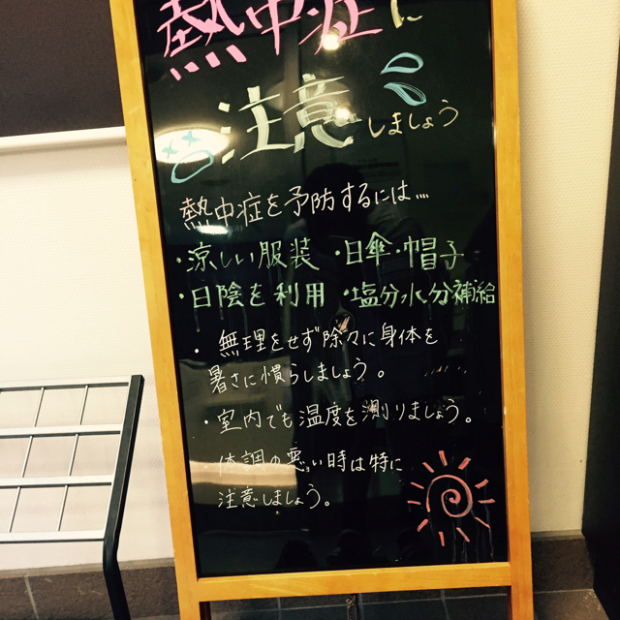 熱中症に
注意しましょう
熱中症を予防するには…
・涼しい服装 ・日傘・帽子
・日陰を利用 ・塩分水分補給
・無理をせず除々に身体を
暑さに慣らしましょう。
・室内でも温度を測りましょう。
・体調の悪い時は特に
注意しましょう。